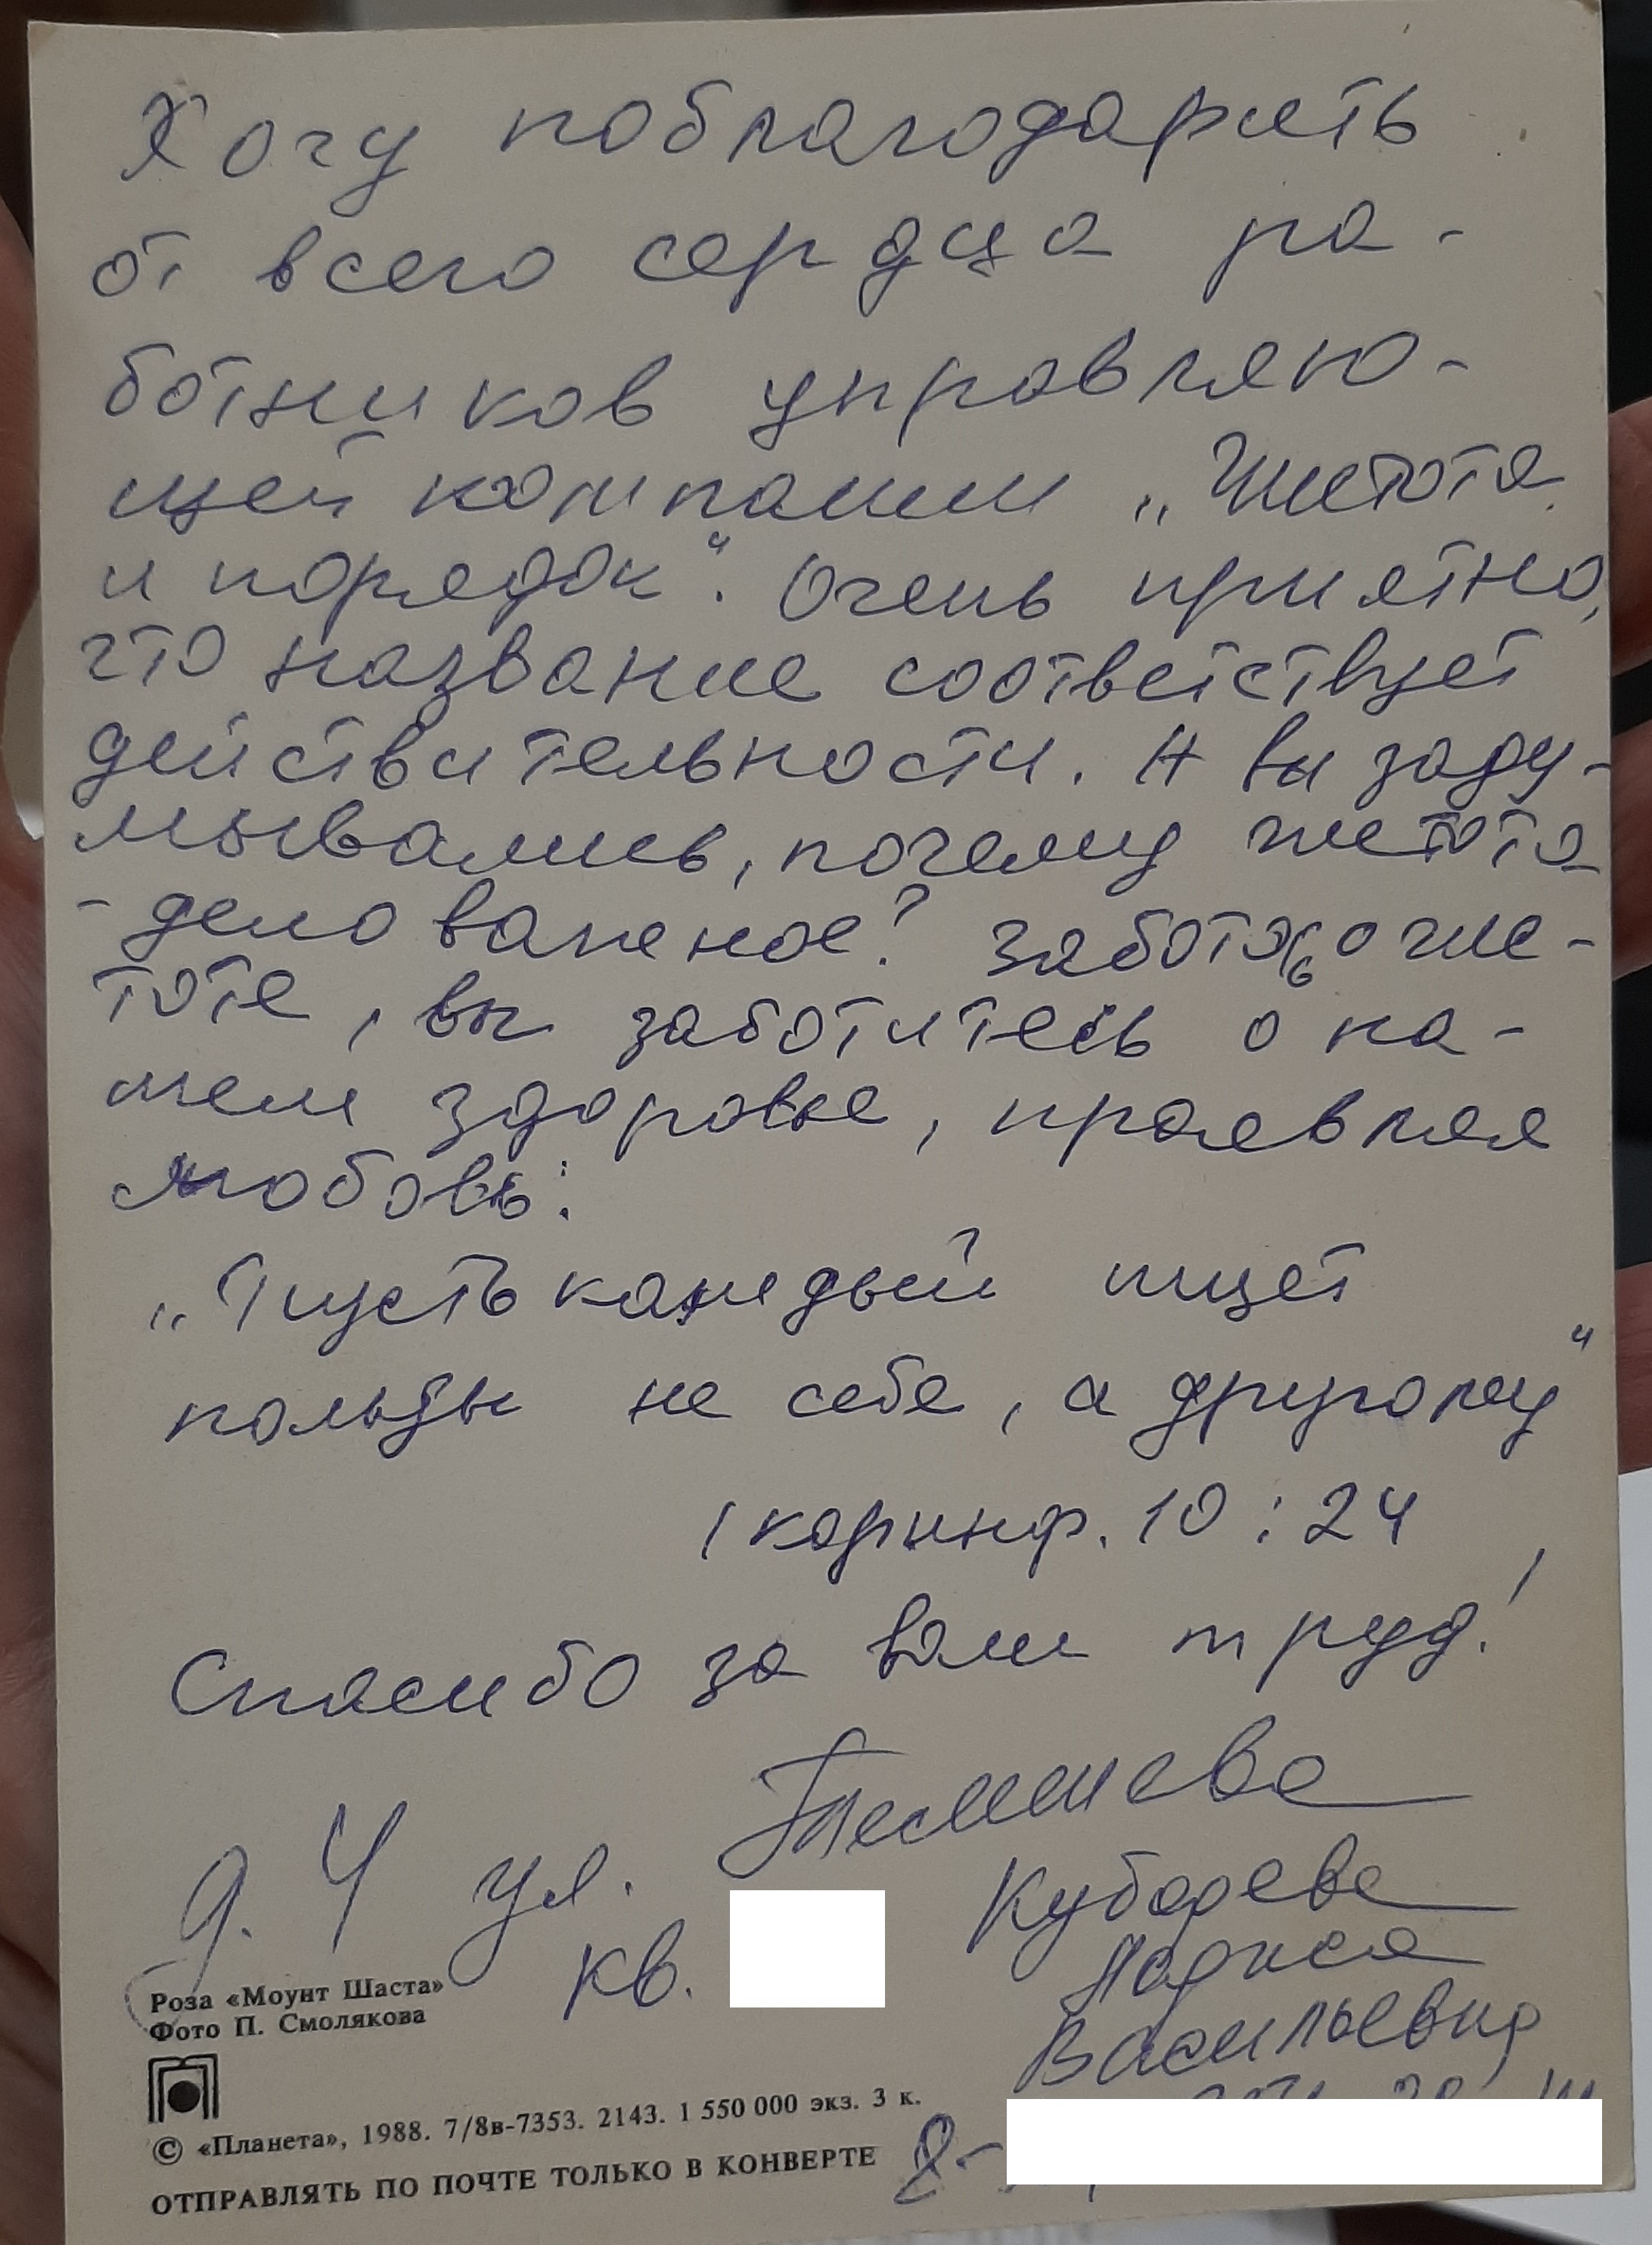 Хочу поблагодарить
от всего сердца ра-
ботников управляю-
щей компании „Чистота
и порядок“. Очень приятно,
что название соответствует
действительности. А вы заду-
мывались, почему чистота
- дело важное? Заботясь о чис-
тоте, вы заботитесь о на-
шем здоровье, проявляя
любовь:
„Пусть каждый ищет
пользы не себе, а другому“
1 коринф. 10:24
Спасибо за ваш труд!
д. 4 ул.
кв.
Васильевна
8-
Роза «Моунт Шаста»
Фото П. Смолякова
© «Планета», 1988. 7/8в-7353. 2143. 1 550 000 экз. 3 к.
ОТПРАВЛЯТЬ ПО ПОЧТЕ ТОЛЬКО В КОНВЕРТЕ